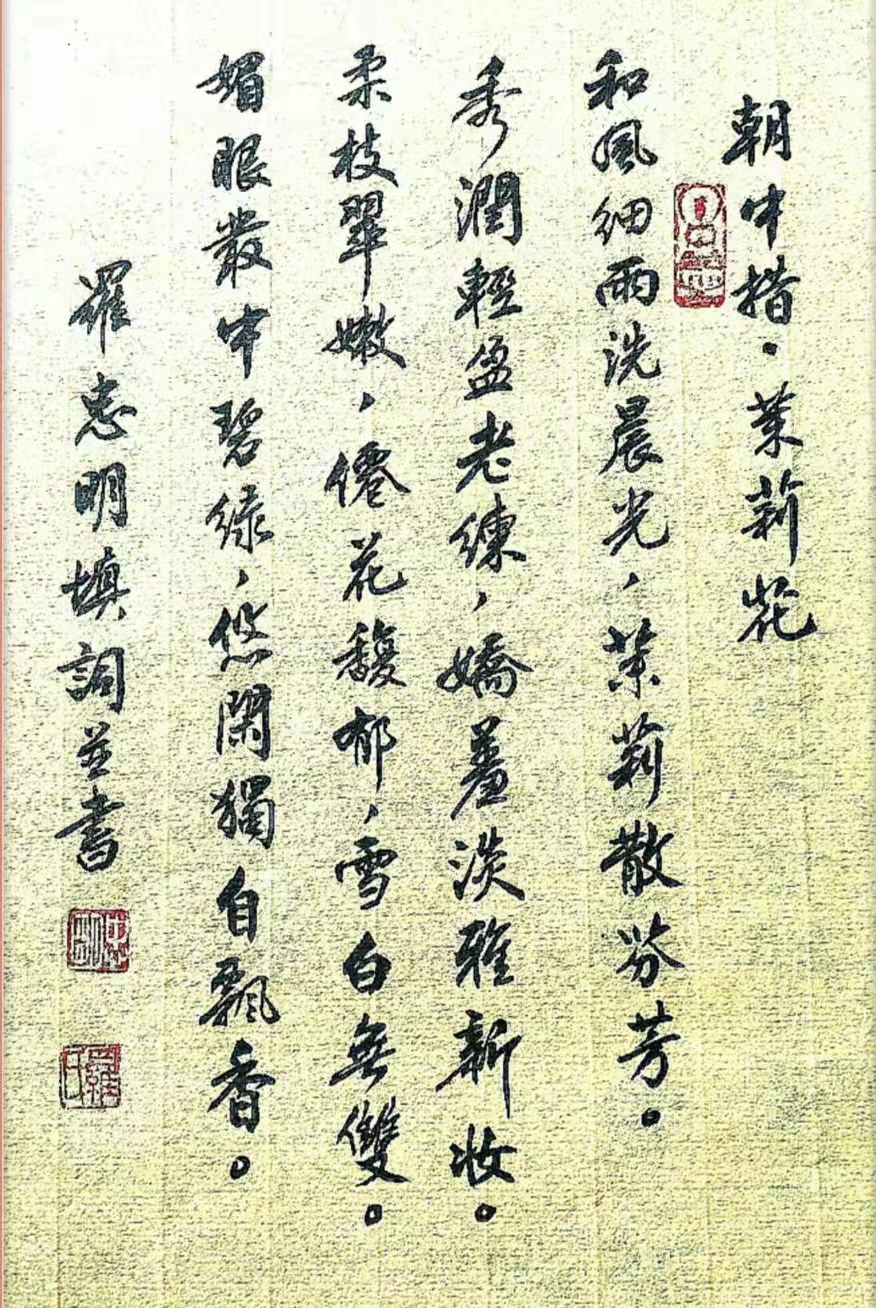 朝中措。茉莉花
和風細雨洗晨光，茉莉散芬芳。
秀潤輕盈老練，嬌羞淡雅新妝。
柔枝翠嫩，僊花馥郁，雪白無雙。
媚眼叢中碧綠，悠閑獨自飄香。
羅惠明填詞並書
惠明
羅氏